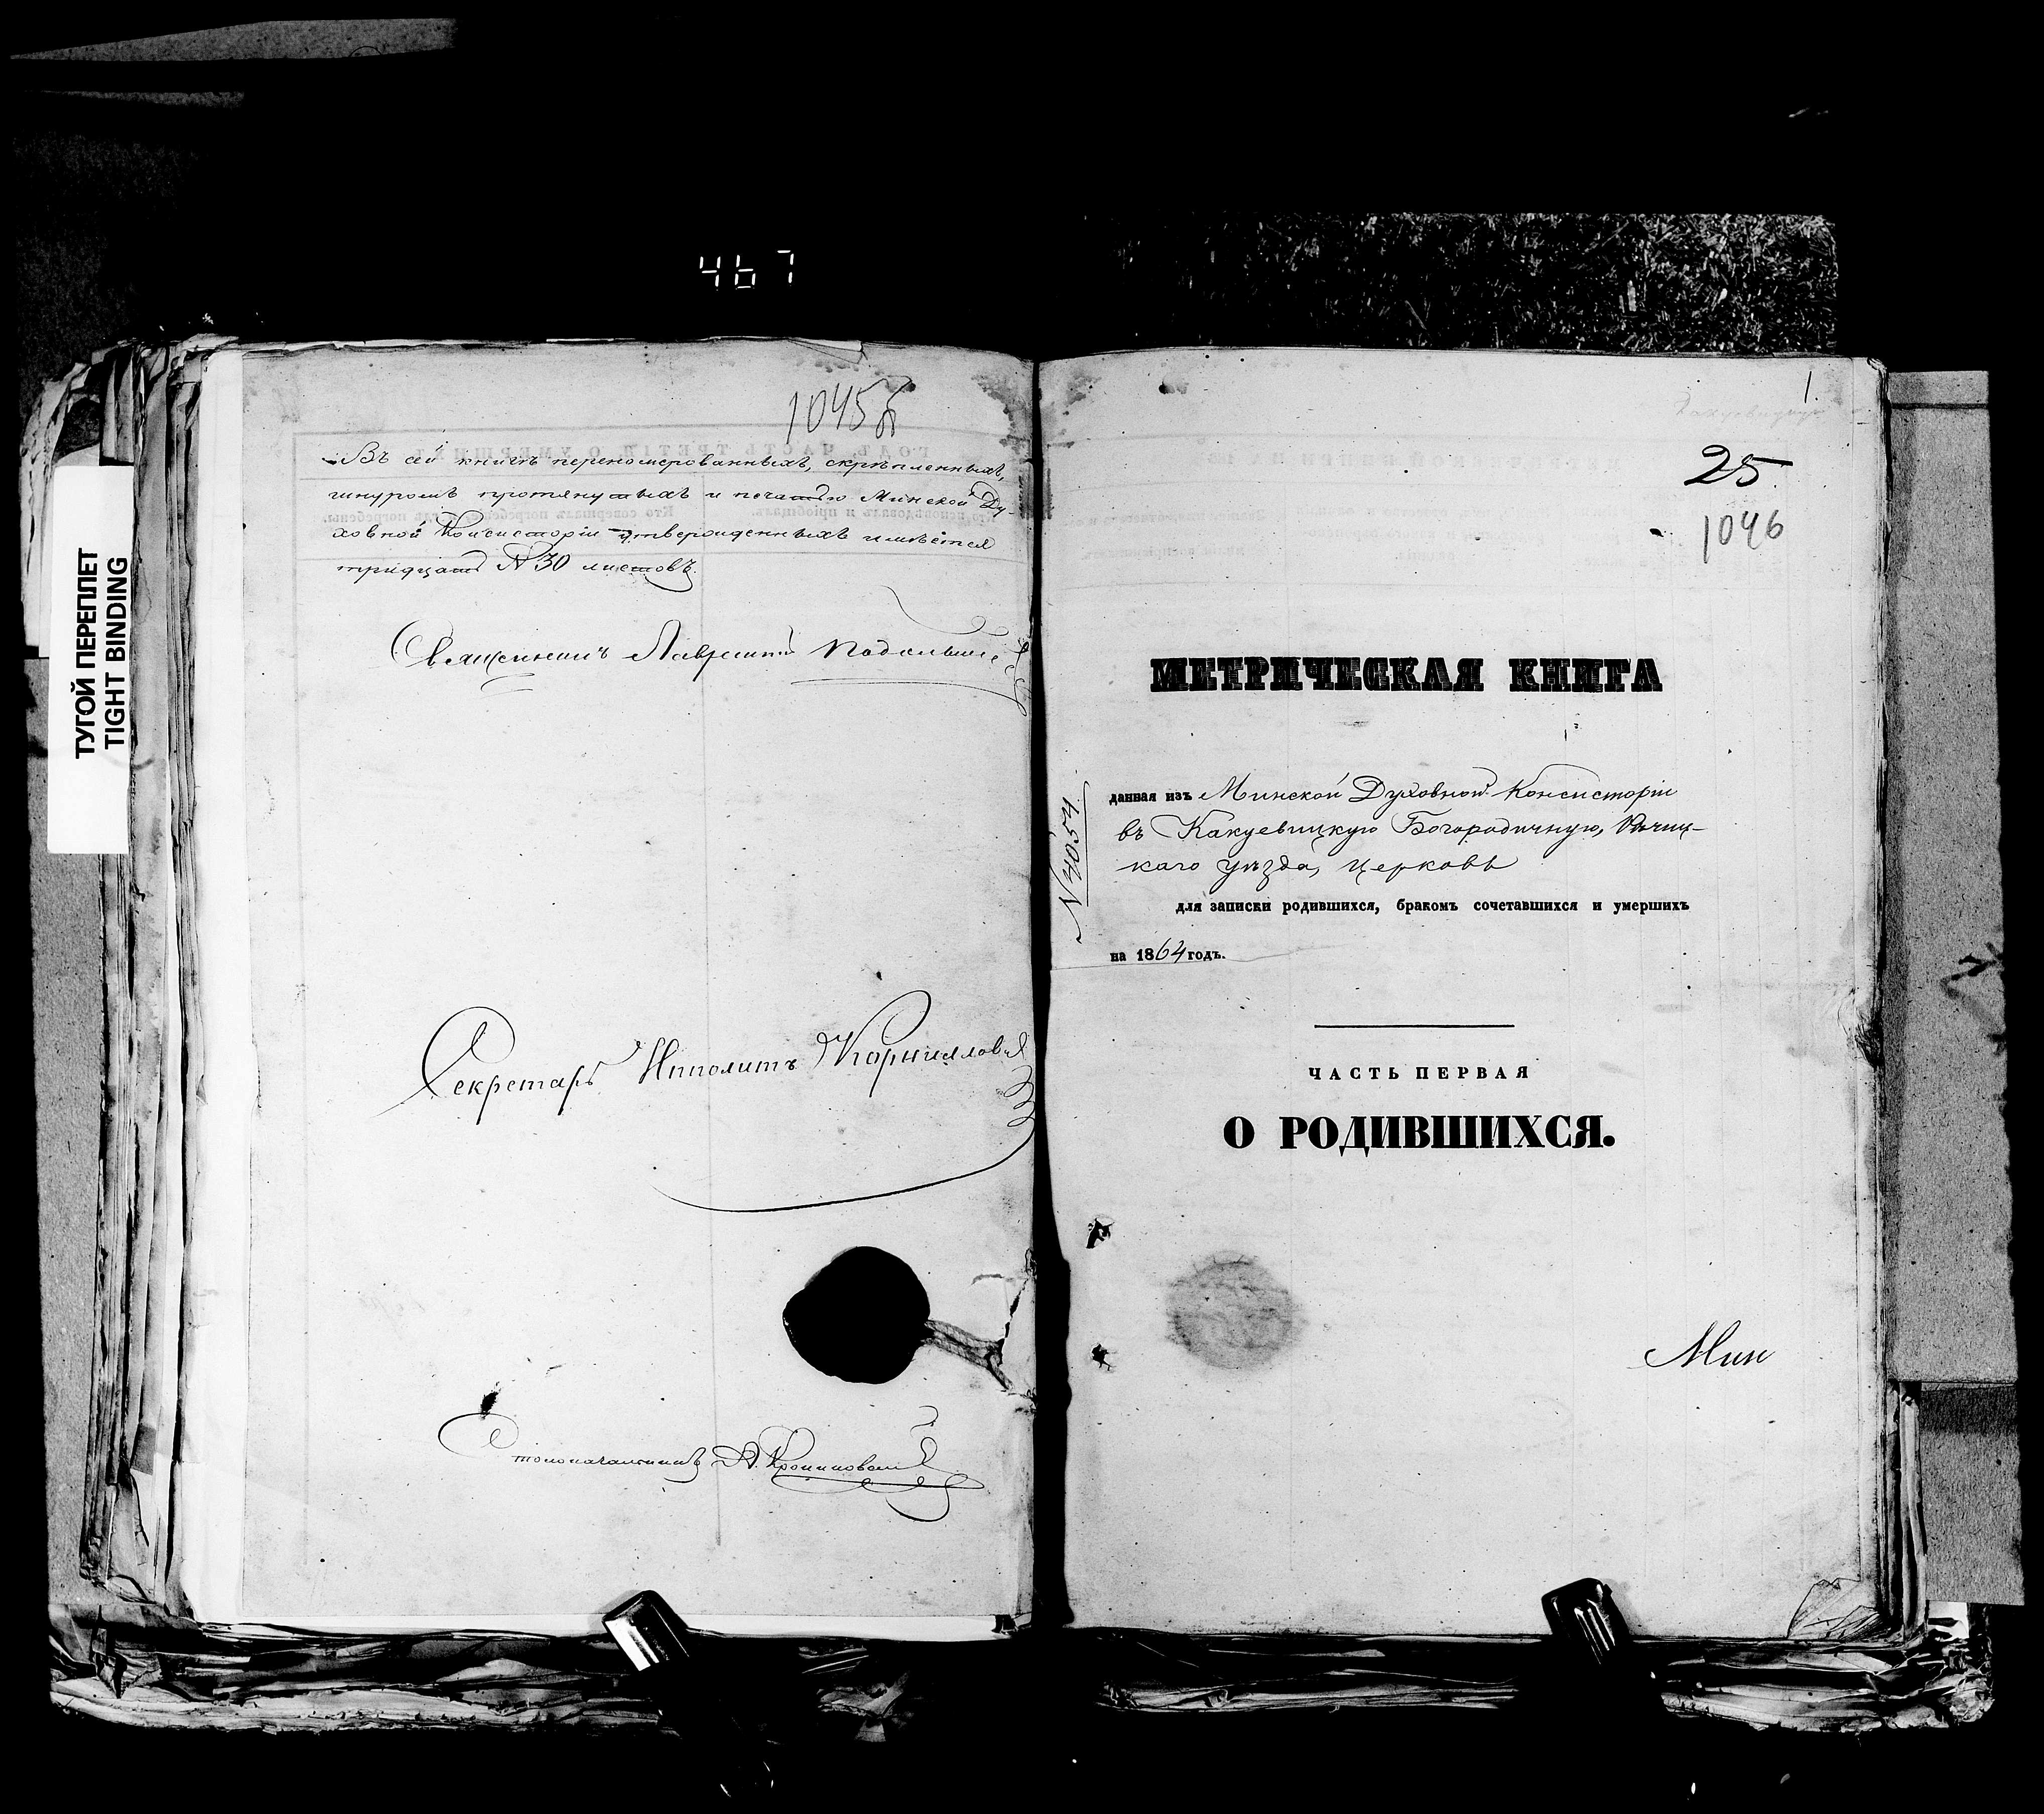 467
ТУГОЙ ПЕРЕПЛЕТ
TIGHT BINDING
1045б
Въ сей книгѣ перенумерованныхъ, скрѣпленныхъ,
шнуромъ протянутыхъ и печатью Минской Ду-
ховной Консисторіи утвержденныхъ имѣется
тридцать № 30 листовъ.
Священникъ Лаврентій
Секретарь Ипполитъ
Столоначальникъ
1.
25
1046
МЕТРИЧЕСКАЯ КНИГА
№ 4054
данная изъ Минской Духовной Консисторіи
въ Какуевицкую Богородичную, Рѣчиц-
каго уѣзда, церковь
для записки родившихся, бракомъ сочетавшихся и умершихъ
на 1864 годъ.
ЧАСТЬ ПЕРВАЯ
О РОДИВШИХСЯ.
Мин